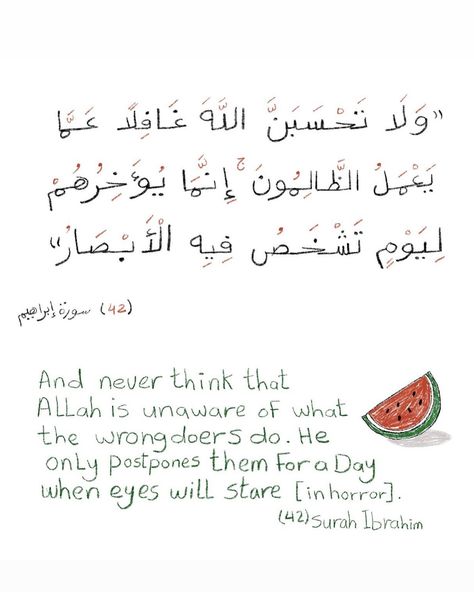 "وَلَا تَحْسَبَنَّ اللَّهَ غَافِلًا عَمَّا
يَعْمَلُ الظَّالِمُونَ ۚ إِنَّمَا يُؤَخِّرُهُمْ
لِيَوْمٍ تَشْخَصُ فِيهِ الْأَبْصَارُ"
(42) سورة إبراهيم
And never think that
ALLah is unaware of what
the wrongdoers do. He
only postpones them For a Day
when eyes will stare [in horror].
(42) Surah Ibrahim